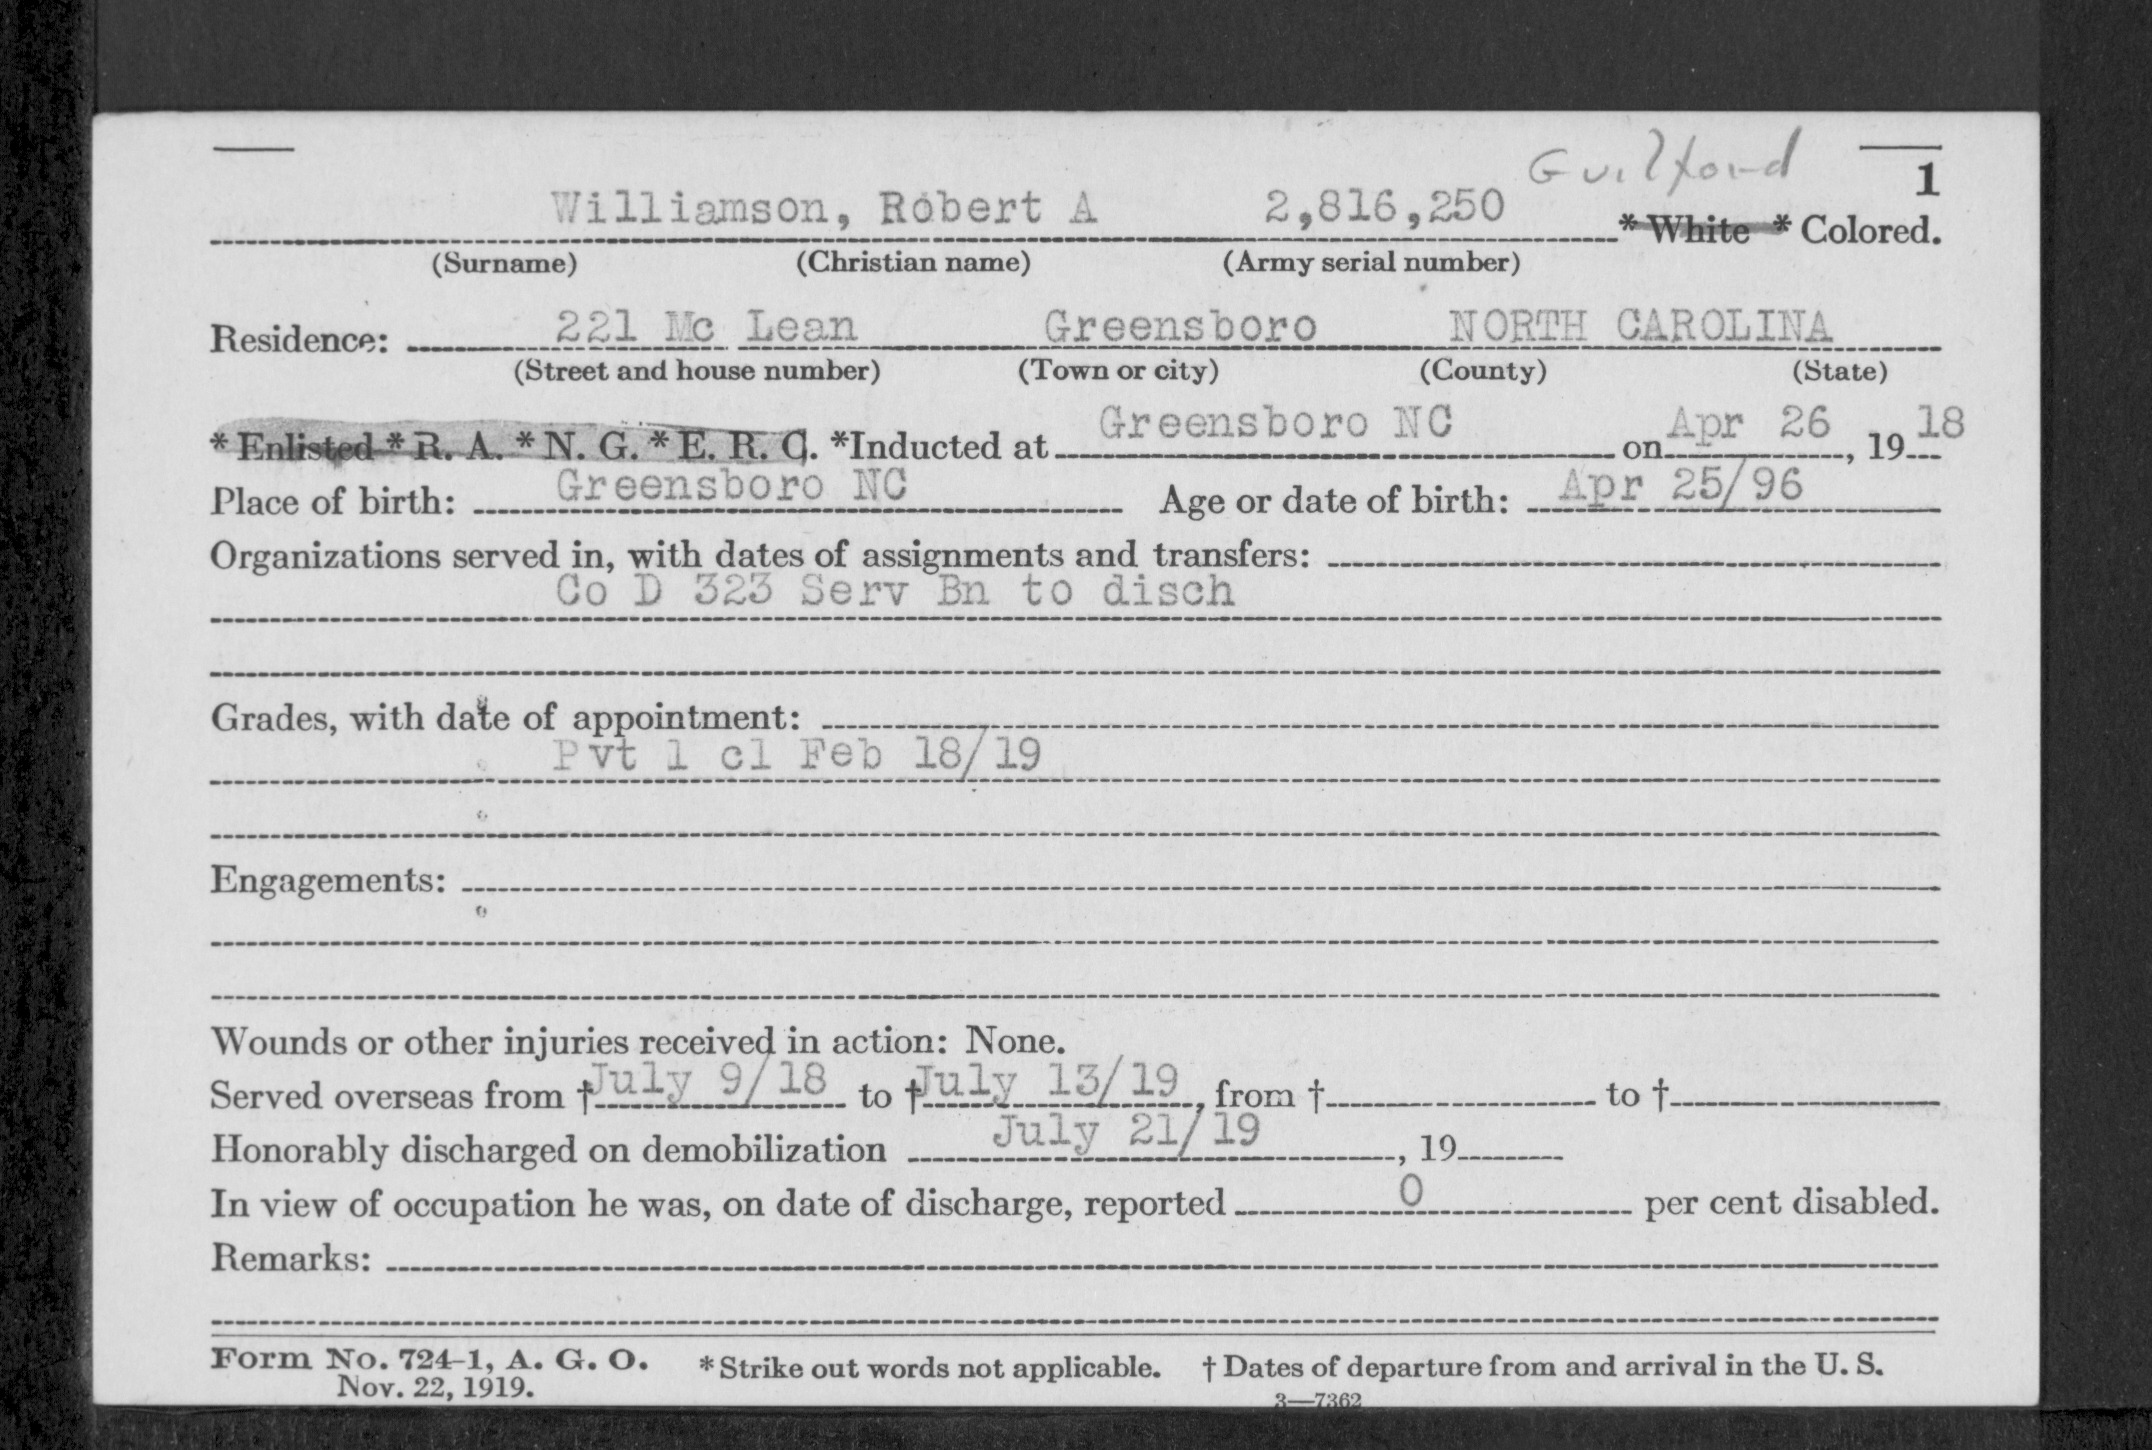 Guilford
1
Williamson, Robert A 2,816,250 * White * Colored.
(Surname) (Christian name) (Army serial number)
Residence: 221 Mc Lean Greensboro NORTH CAROLINA
(Street and house number) (Town or city) (County) (State)
* Enlisted * R. A. * N. G. * E. R. C. *Inducted at Greensboro NC on Apr 26, 19 18
Place of birth: Greensboro NC Age or date of birth: Apr 25/96
Organizations served in, with dates of assignments and transfers:
Co D 323 Serv Bn to disch
Grades, with date of appointment:
Pvt 1 cl Feb 18/19
Engagements:
Wounds or other injuries received in action: None.
Served overseas from † July 9/18 to † July 13/19, from † to †
Honorably discharged on demobilization July 21/19, 19
In view of occupation he was, on date of discharge, reported 0 per cent disabled.
Remarks:
Form No. 724-1, A. G. O. * Strike out words not applicable. † Dates of departure from and arrival in the U. S.
Nov. 22, 1919.
3—7362